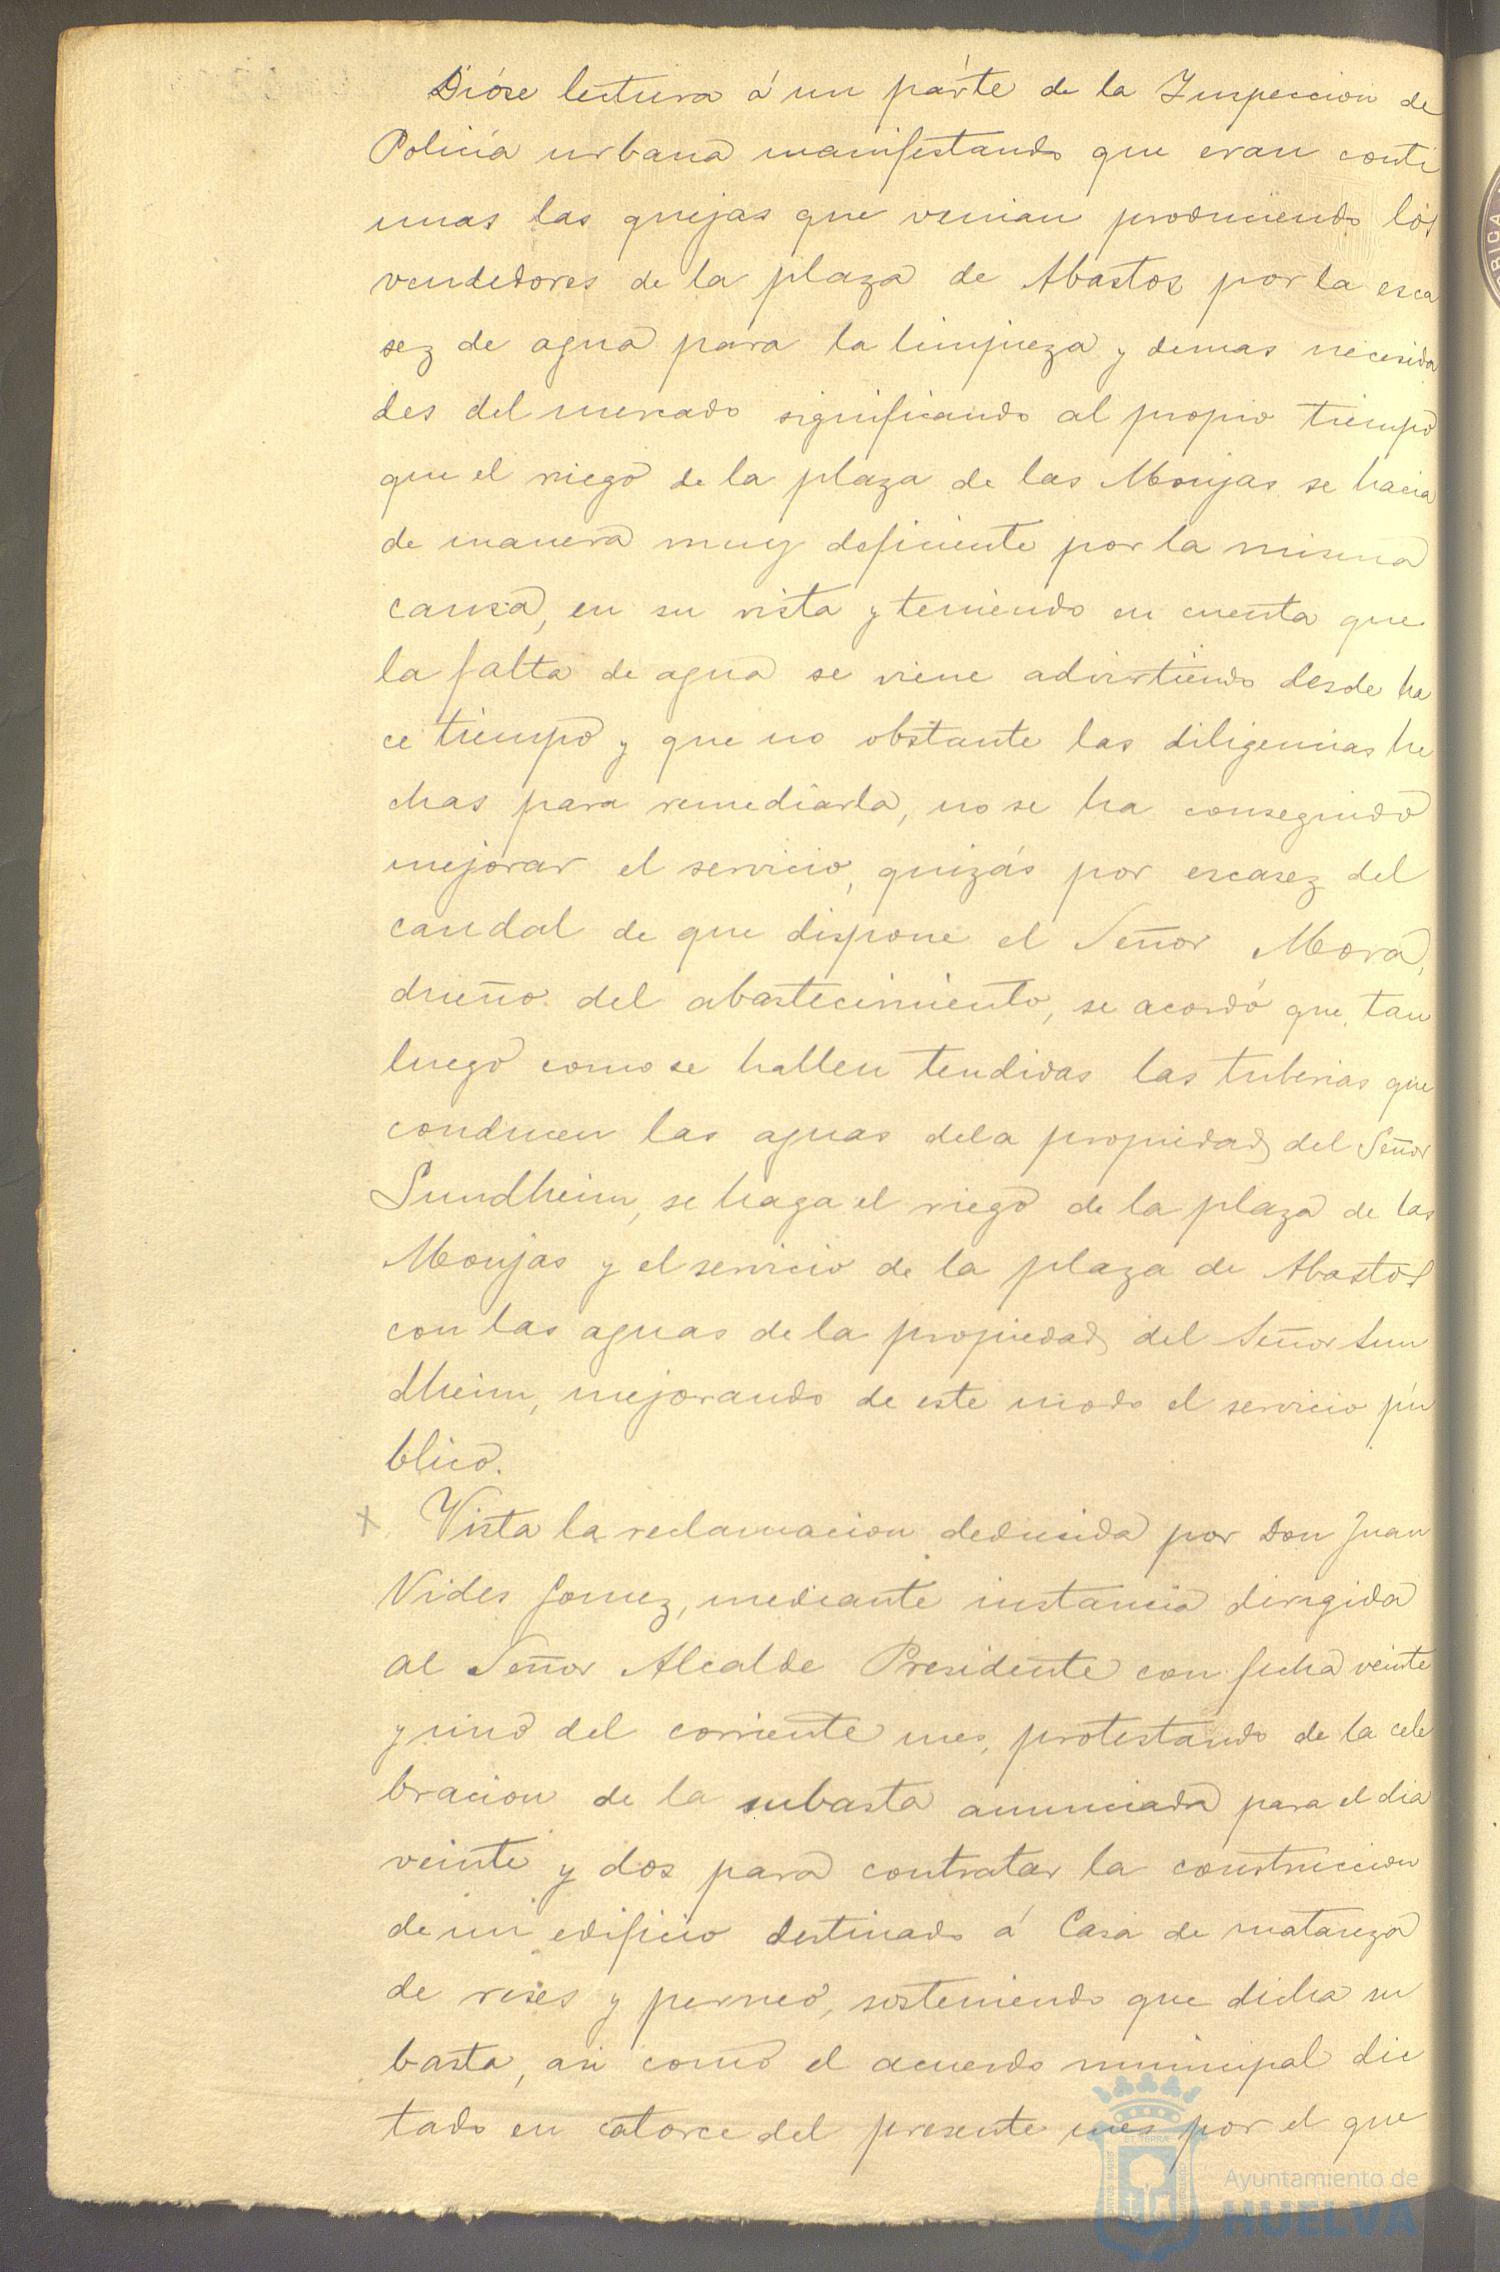 Dióse lectura á un párte de la Inspeccion de
Policia urbana manifestando que eran conti
nuas las quejas que venian produciendo los
vendedores de la plaza de Abastos por la esca
sez de agua para la limpieza y demas necesida
des del mercado significando al propio tiempo
que el riego de la plaza de las Monjas se hacia
de manera muy deficiente por la misma
causa, en su vista y teniendo en cuenta que
la falta de agua se viene advirtiendo desde ha
ce tiempo y que no obstante las diligencias he
chas para remediarla, no se ha conseguido
mejorar el servicio, quizás por escasez del
caudal de que dispone el Señor Mora,
dueño del abastecimiento, se acordó que, tan
luego como se hallen tendidas las tuberias que
conducen las aguas dela propiedad del Señor
Sundheim, se haga el riego de la plaza de las
Monjas y el servicio de la plaza de Abastos
con las aguas de la propiedad del Señor Sun
dheim, mejorando de este modo el servicio pú
blico.
x Vista la reclamacion deducida por Don Juan
Vides Gomez, mediante instancia dirigida
al Señor Alcalde Presidente con fecha veinte
y uno del corriente mes, protestando de la cele
bracion de la subasta anunciada para el dia
veinte y dos para contratar la construccion
de un edificio destinado á Casa de matanza
de reses y perneo, sosteniendo que dicha su
basta, asi como el acuerdo municipal dic
tado en catorce del presente mes por el que
Ayuntamiento de
HUELVA